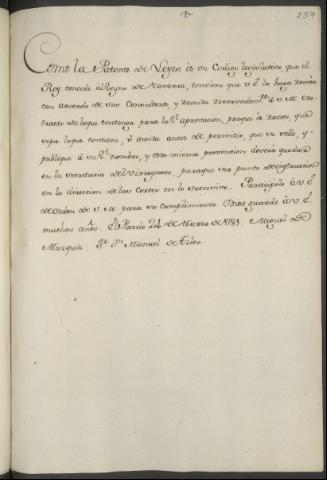 254
Como la Patente de Leyes es un Codigo legislativo, que el
Rey concede al Reyno de Navarra, conviene que V. E. la haga
con acuerdo de sus Consultores, y remita reservadam.te a S. M.
de lo que contenga para la R.l aprovacion, porque es razon, que
sepa lo que contiene, ú omita antes de permitir, que se selle, y
publique á su R.l nombre, y esta misma prevencion deverá quedar
en la Secretaria del Virreynato, para que sea punto de instruccion
en la direccion de las Cortes en lo succesivo. Participolo á V. E.
de orden de S. M. para su cumplimiento. Dios guarde á V. E.
muchos años. El Pardo 24 de Marzo de 1781. Miguel de
Muzquiz. S.or D.n Manuel de Azlor.